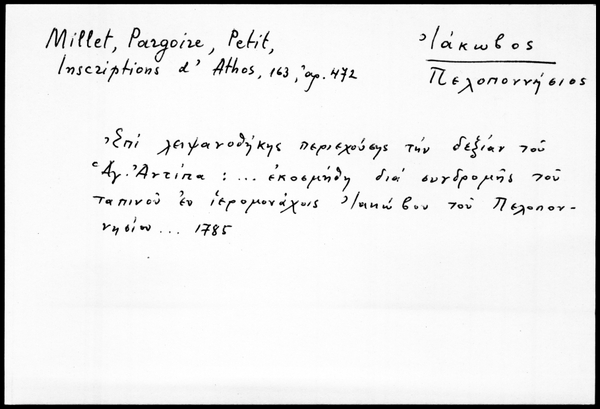 Millet, Pargoire, Petit,
Inscriptions d' Athos, 163, ἀρ. 472
Ἰάκωβος
Πελοποννήσιος
Ἐπί λειψανοθήκης περιεχούσης τήν δεξίαν τοῦ
Ἁγ. Ἀντίπα : ... ἐκοσμήθη διά συνδρομῆς τοῦ
ταπινοῦ ἐν ἱερομονάχοις Ἰακώβου τοῦ Πελοπον-
νησίου ... 1785